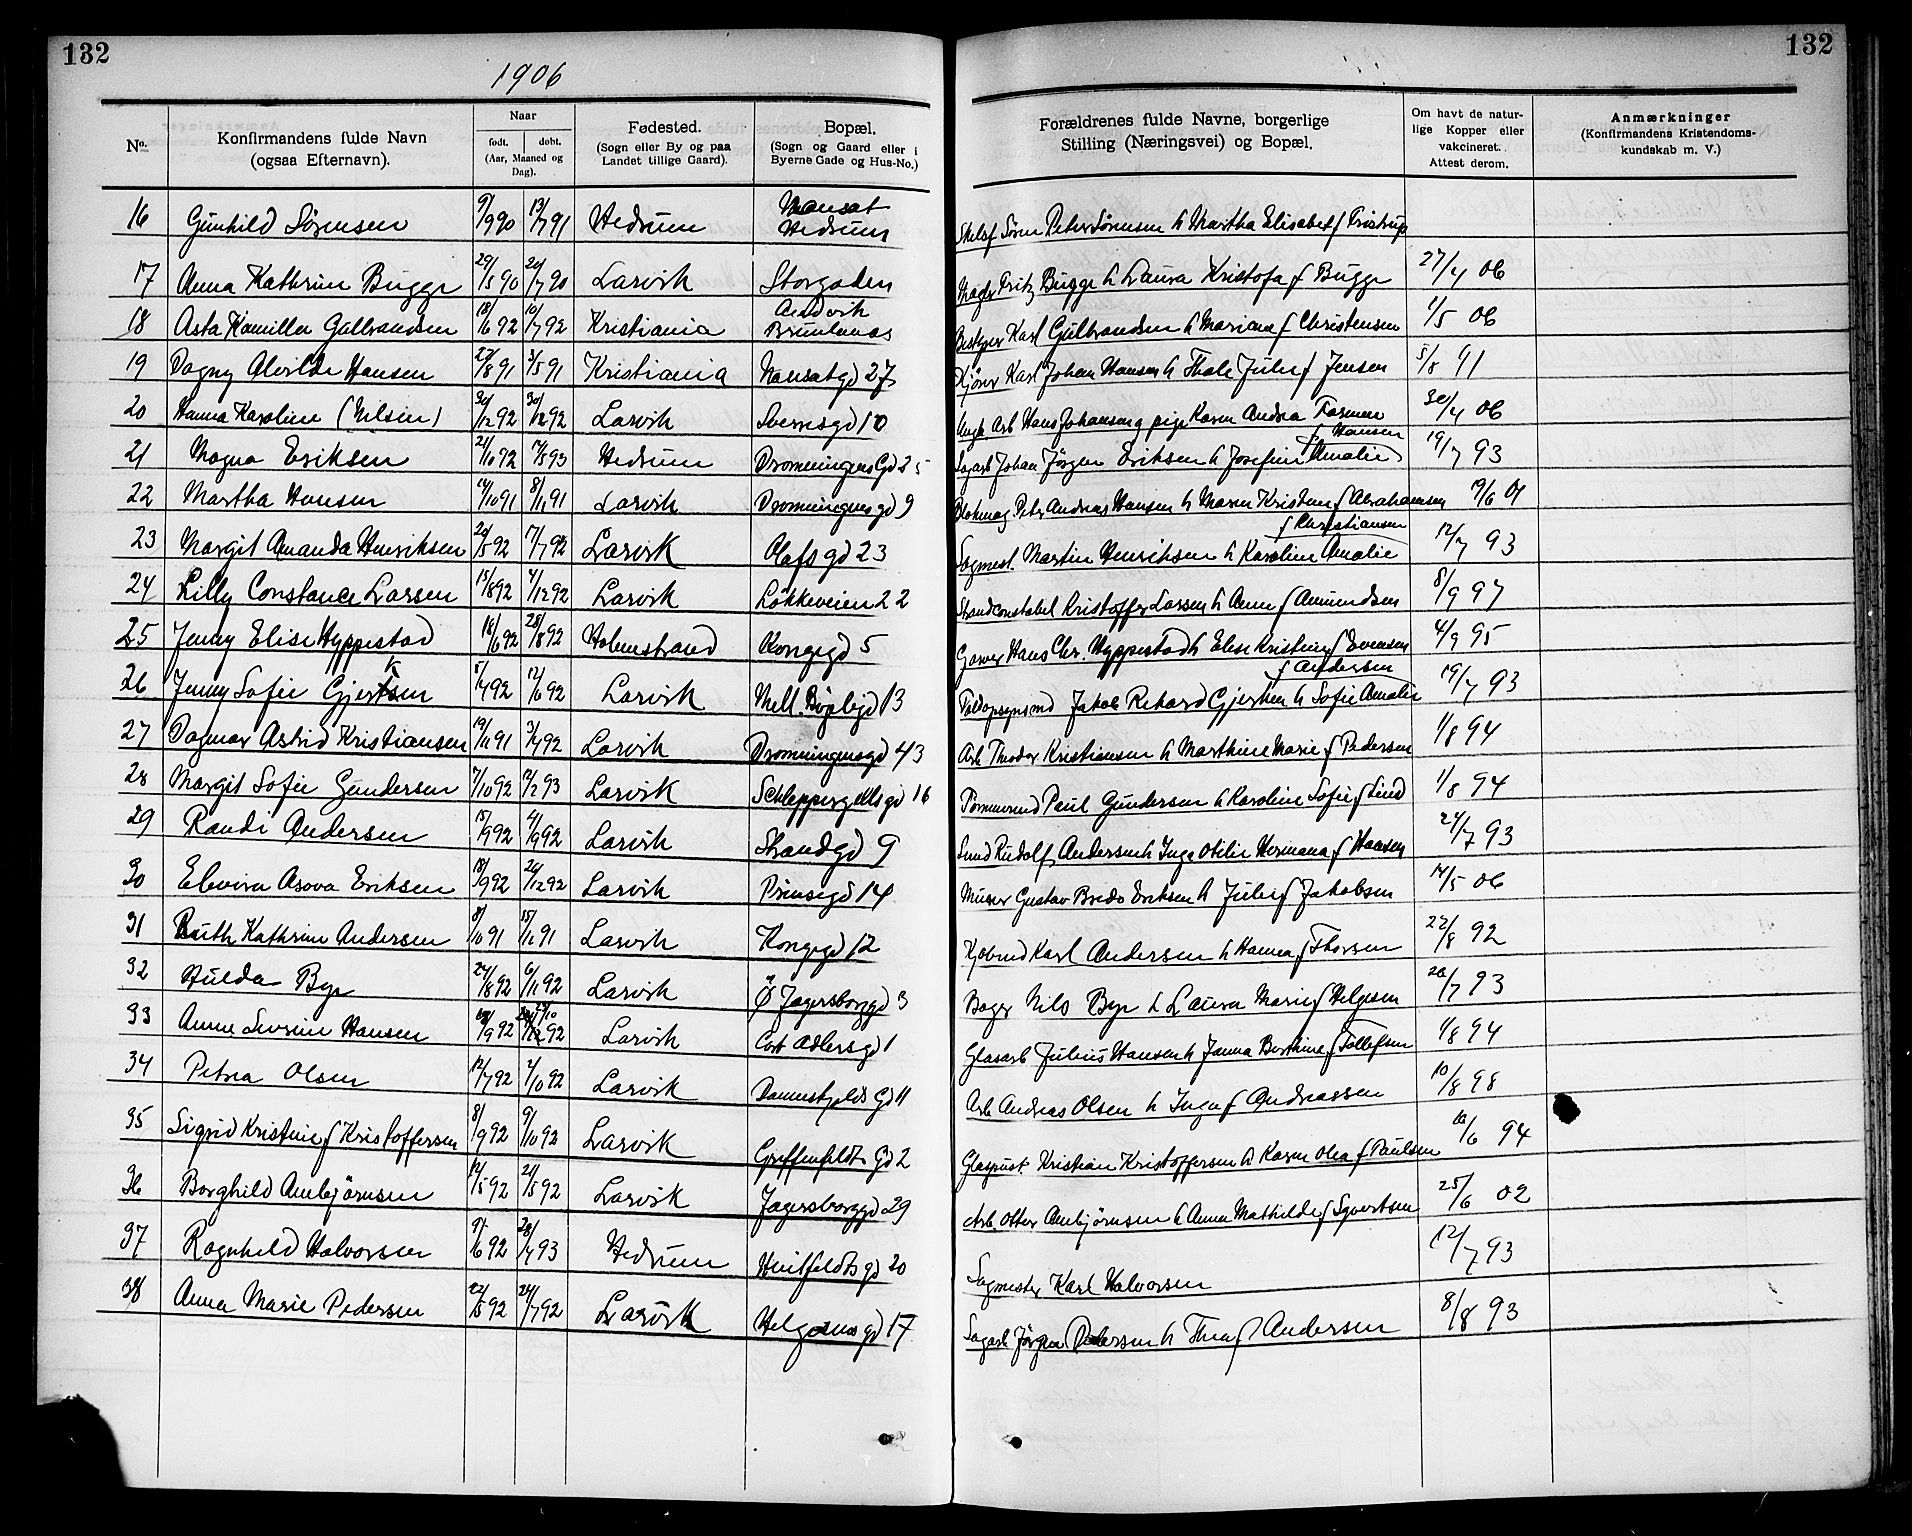 132
132
1906
No. | Konfirmandens fulde Navn (ogsaa Efternavn). | Naar født. døbt. (Aar, Maaned og Dag). | Fødested. (Sogn eller By og paa Landet tillige Gaard). | Bopæl. (Sogn og Gaard eller i Byerne Gade og Hus-No.) | Forældrenes fulde Navne, borgerlige Stilling (Næringsvei) og Bopæl. | Om havt de naturlige Kopper eller vakcineret. Attest derom. | Anmærkninger (Konfirmandens Kristendomskundskab m. V.)
16 Gunhild Sørensen 9/9 90 13/7 91 Hedrum Nansat Hedrum Søren Peter Sørensen h Martha Elisabet f Tristrup
17 Anna Kathrine Bugge 29/5 90 20/7 90 Larvik Storgaden Fritz Bugge h Laura Kristofa f Bugge 27/4 06
18 Asta Kamilla Gulbrandsen 18/6 92 10/7 92 Kristiania Brunlanæs Bestyrer Karl Gulbrandsen h Mariane f Christensen 1/5 06
19 Dagny Alvilde Hansen 22/8 91 3/5 91 Kristiania Nansetgd 27 Kjører Karl Johan Hansen h Thale Julie f Jensen 5/8 91
20 Hanna Karoline (Nilsen) 30/12 92 30/12 92 Larvik Sverresgd 10 Ungk Arb Hans Johansen og pige Karen Andrea 30/4 06
21 Magna Eriksen 21/10 92 17/5 93 Hedrum Dronningens Gd 25 Sagarb Johan Jörgen Eriksen h Josefine Amalie f Hansen 19/7 93
22 Martha Hansen 14/10 91 8/11 91 Larvik Dronningensgd 9 Blokmag Peter Andreas Hansen h Maren Kristine f Abrahamsen 19/6 01
23 Margit Amanda Henriksen 20/5 92 17/7 92 Larvik Olafsgd 23 Sagmest. Martin Henriksen h Karoline Amalie f Christiansen 12/7 93
24 Lilly Constance Larsen 15/8 92 4/12 92 Larvik Løkkeveien 22 Strandconstabel Kristoffer Larsen h Anne f Amundsen 8/9 97
25 Jenny Elise Hyppestad 18/6 92 28/8 92 Holmestrand Kongegd 5 Garver Hans Chr. Hyppestad h Elise Kristine f Evensen 4/9 95
26 Jenny Sofie Gjertsen 5/4 92 12/6 92 Larvik Mell. Bøplegd 13 Toldopsynsmd Jakob Rikard Gjertsen h Sofie Amalie f Andersen 19/7 93
27 Dagmar Astrid Kristiansen 19/11 91 3/4 92 Larvik Dronningensgd 43 Arb Theodor Kristiansen h Marthine Marie f Pedersen 1/8 94
28 Margit Sofie Gundersen 7/10 92 12/2 93 Larvik Schleppergrellsgd 16 Tømmermd Paul Gundersen h Karoline Sofie f Lind 1/8 94
29 Randi Andersen 15/9 92 4/9 92 Larvik Strandgd 9 Smed Rudolf Andersen h Inga Otilie Hermana f Hansen 24/7 93
30 Elevira Asora Eriksen 18/9 92 26/12 92 Larvik Prinsegd 14 Murer Gustav Bredo Eriksen h Julie f Jakobsen 14/5 06
31 Ruth Kathrine Andersen 8/10 91 15/11 91 Larvik Kongegd 12 Kjøbmd Karl Andersen h Hanna f Thorsen 22/8 92
32 Hulda Bye 24/8 92 6/11 92 Larvik Ø Jagersborggd 3 Bager Nils Bye h Laura Marie f Helgesen 20/7 93
33 Anne Sevrine Hansen 9/9 92 12 92 Larvik Cort Adlersgd 1 Glasarb Julius Hansen h Janna Berthine f Tollefsen 1/8 94
34 Petra Olsen 12/7 92 2/10 92 Larvik Danneskjolds Gd 11 Arb Andreas Olsen h Inga f Andreassen 10/8 98
35 Sigrid Kristine f Kristoffersen 8/9 92 9/10 92 Larvik Greffenfeldts Gd 2 Glaspust. Kristian Kristoffersen h Karen Olea f Paulsen 16/6 94
36 Borghild Ambjørnsen 14/5 92 21/5 92 Larvik Jagersborggd 29 Arb. Otter Ambjørnsen h Anna Mathilde f Syvertsen 25/6 02
37 Ragnhild Halvorsen 9/6 92 28/4 93 Hedrum Huitfeldtsgd 20 Sagmester Karl Halvorsen 12/7 93
38 Anna Marie Pedersen 22/5 92 24/7 92 Larvik Helgesensgd 17 Sagarb Jørgen Pedersen h Thea f Andersen 8/8 93